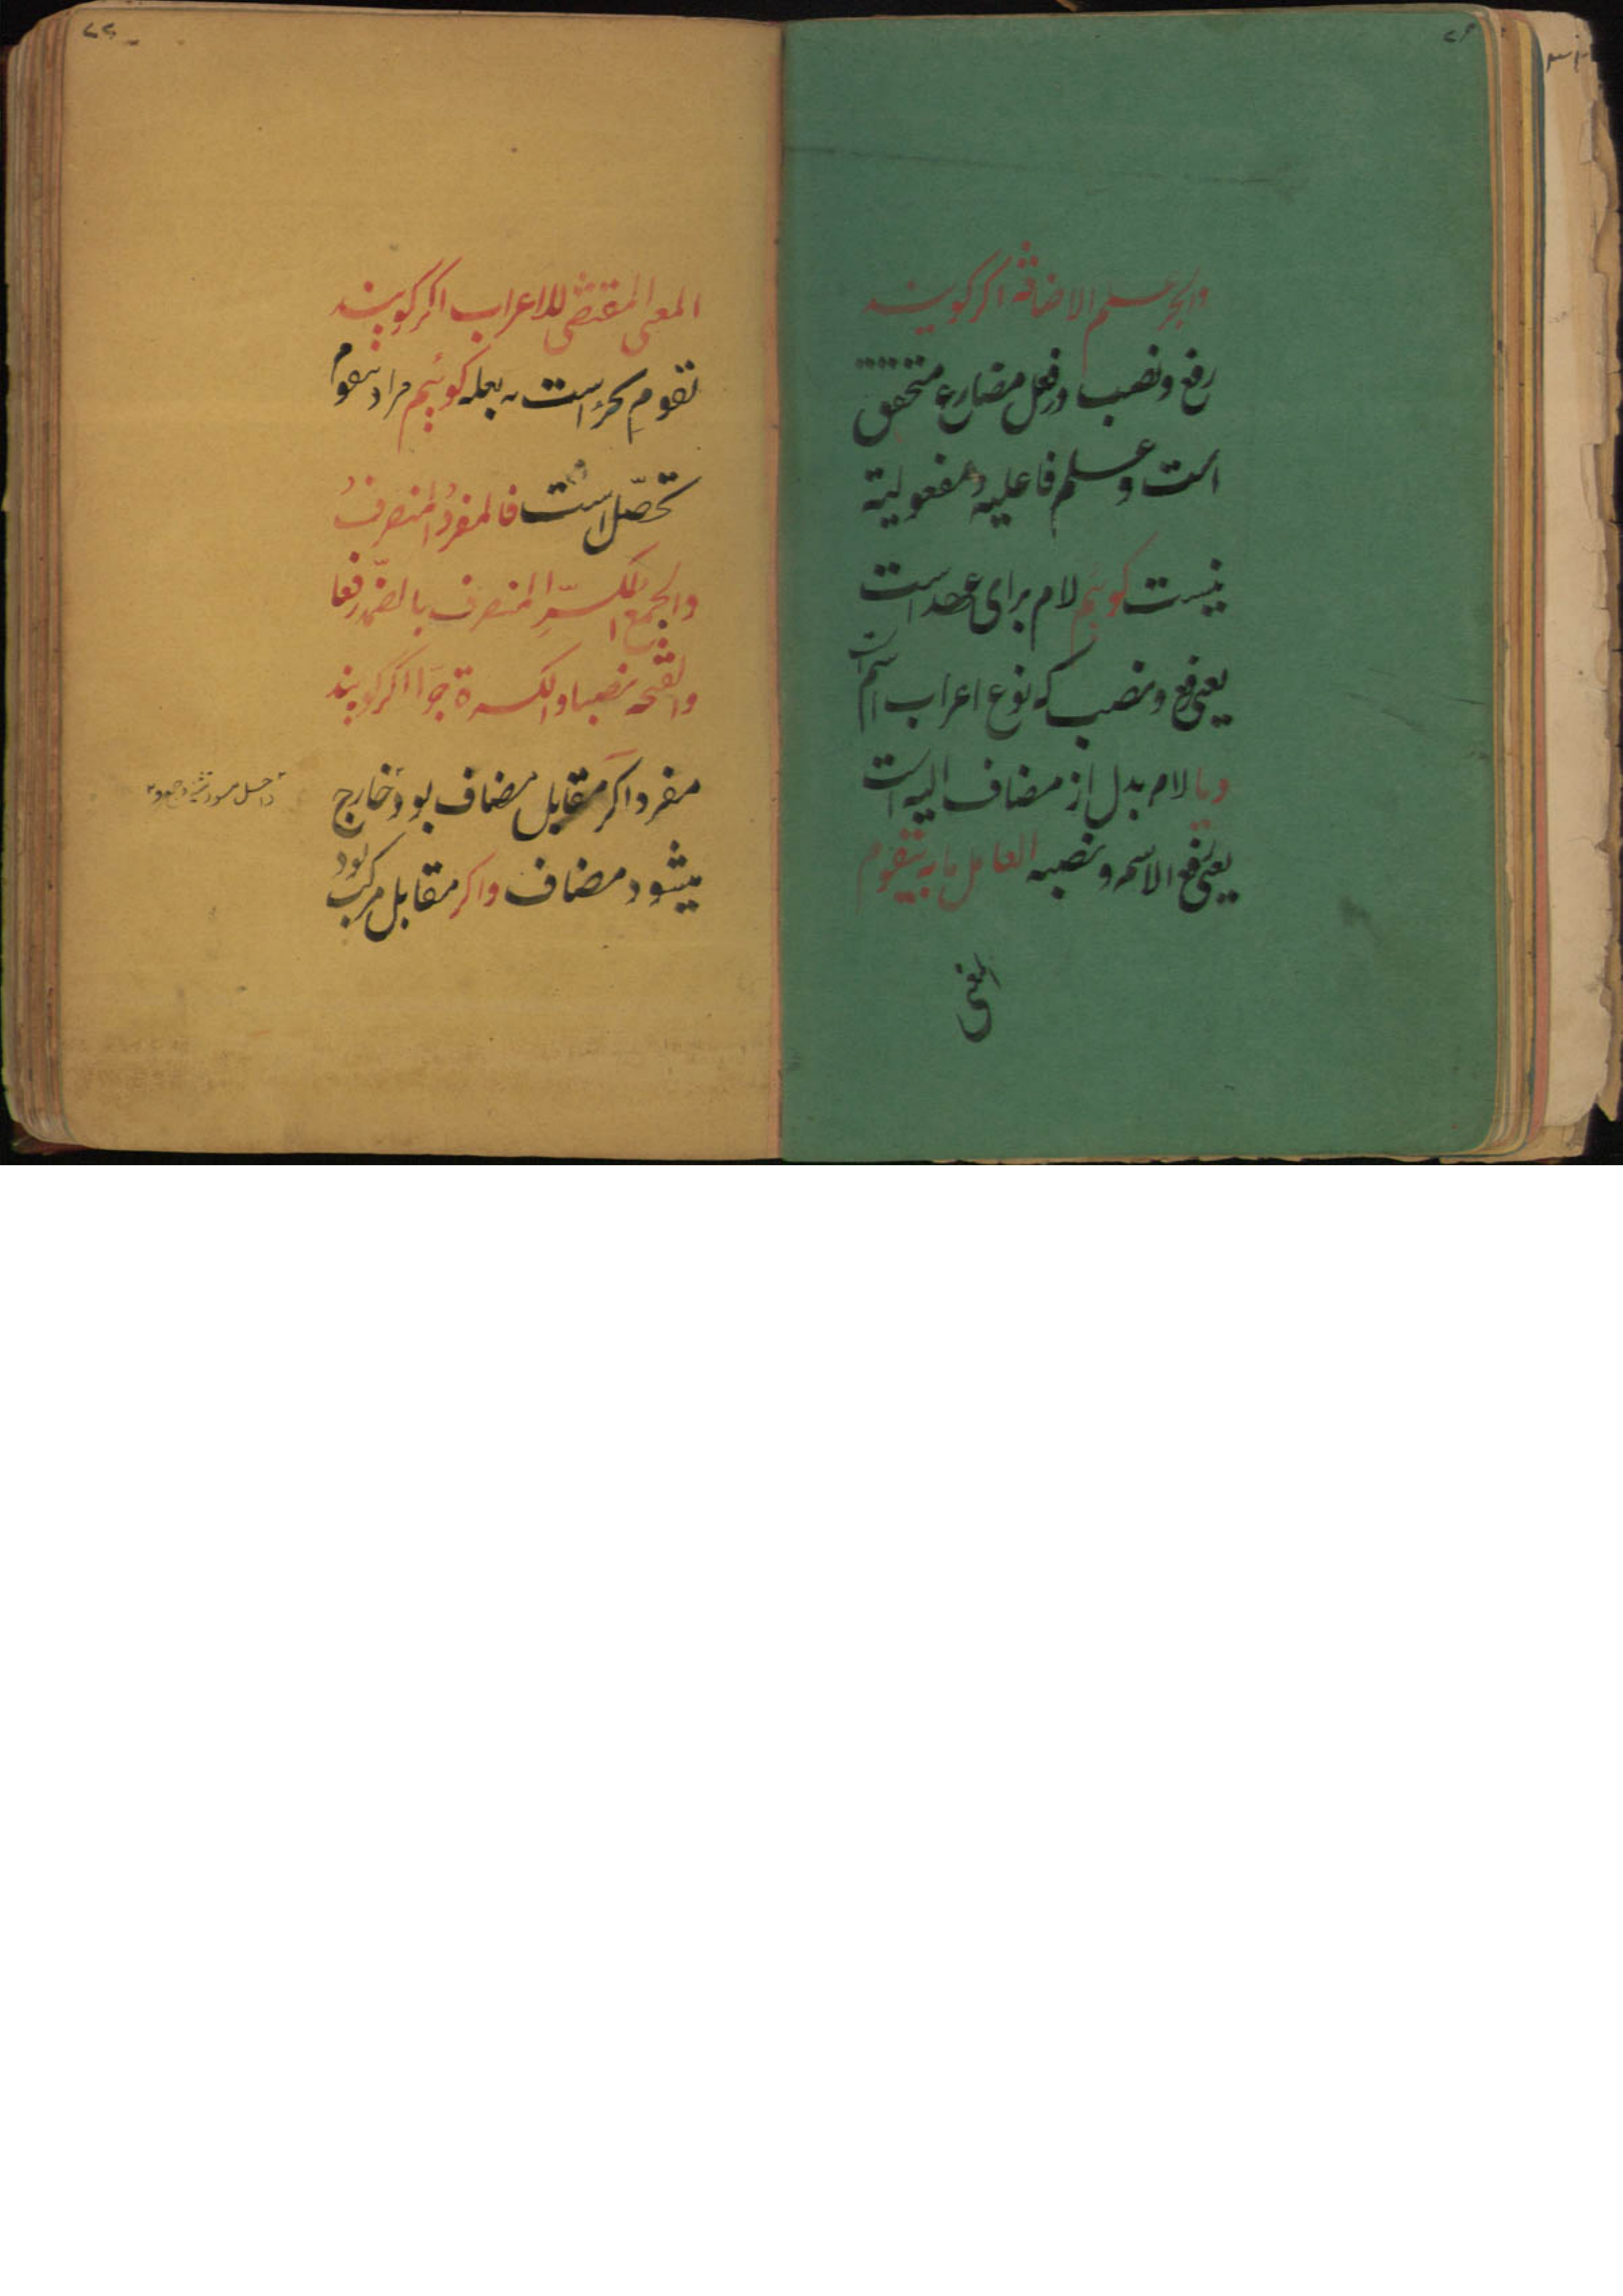 ۷۶
والجر علم الاضافة اگر گویند
رفع و نصب در فعل مضارع متحقق
است و علم فاعلیه و مفعولیة
نیست گوئیم لام برای عهد است
یعنی رفع و نصب که نوع اعراب اسم است
و یا لام بدل از مضاف الیه است
یعنی رفع الاسم و نصبه العامل ما به یتقوم
المعنی
۷۷
المعنی المقتضی للاعراب اگر گویند
تقوم بجزء است نه بعله گوئیم مراد بتقوم
تحصّل است فالمفردُ المنصرفُ
والجمع المکسّر المنصرف بالضمة رفعا
والفتحة نصبا والکسرة جرّا اگر گویند
مفرد اگر مقابل مضاف بود خارج
میشود مضاف واگر مقابل مرکب بود
داخل میشود تثنیه و جمع